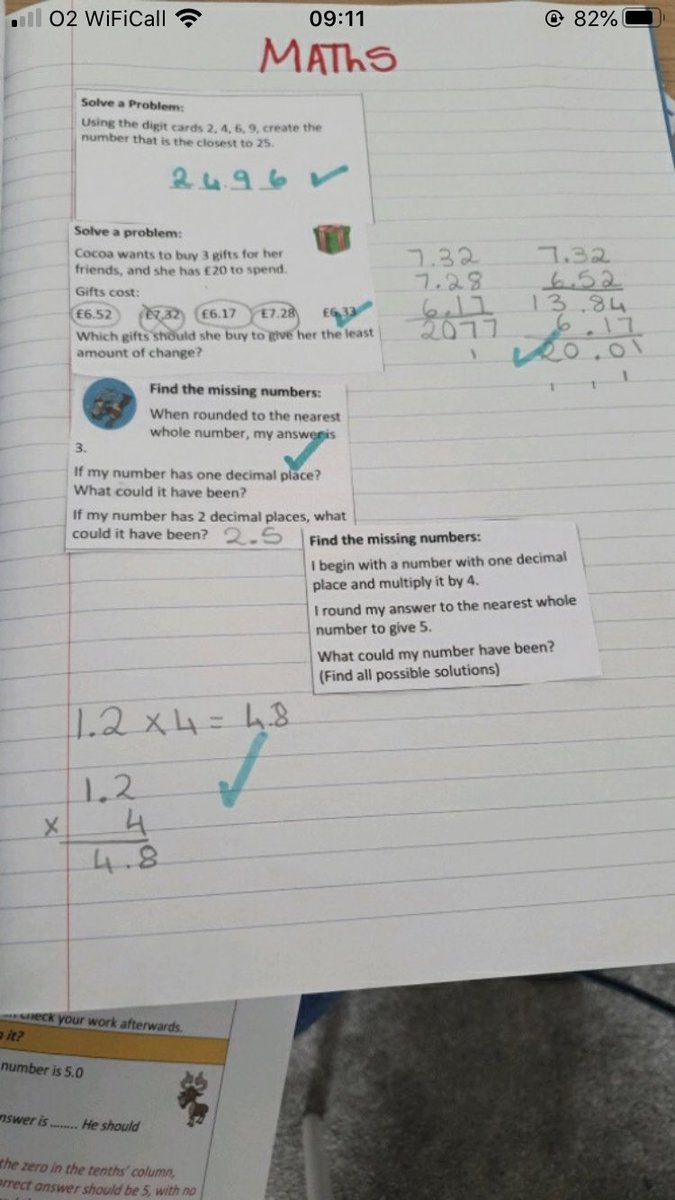 O2 WiFiCall 09:11 82%
MATHS
Solve a Problem:
Using the digit cards 2, 4, 6, 9, create the
number that is the closest to 25.
24.96
Solve a problem:
Cocoa wants to buy 3 gifts for her
friends, and she has £20 to spend.
Gifts cost:
£6.52 £7.32 £6.17 £7.28 £6.33
Which gifts should she buy to give her the least
amount of change?
7.32
7.28
6.17
2077
1
7.32
6.52
13.84
6.17
20.01
1 1 1
Find the missing numbers:
When rounded to the nearest
whole number, my answer is
3.
If my number has one decimal place?
What could it have been?
If my number has 2 decimal places, what
could it have been? 2.5
Find the missing numbers:
I begin with a number with one decimal
place and multiply it by 4.
I round my answer to the nearest whole
number to give 5.
What could my number have been?
(Find all possible solutions)
1.2 x 4 = 4.8
1.2
x 4
4.8
check your work afterwards.
it?
number is 5.0
answer is ........ He should
the zero in the tenths' column,
correct answer should be 5, with no